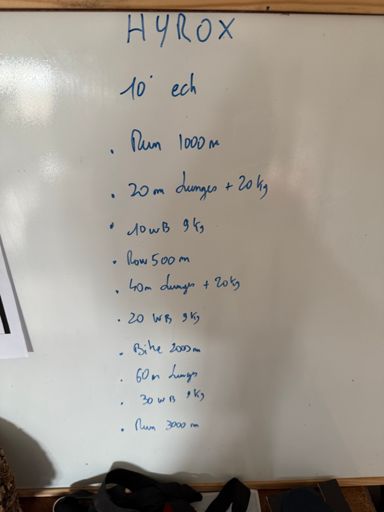 HYROX
10' ech
. Run 1000m
. 20m Lunges + 20kg
. 10 WB 9kg
. Row 500m
. 40m Lunges + 20kg
. 20 WB 9kg
. Bike 2000m
. 60m Lunges
. 30 WB 9kg
. Run 3000m